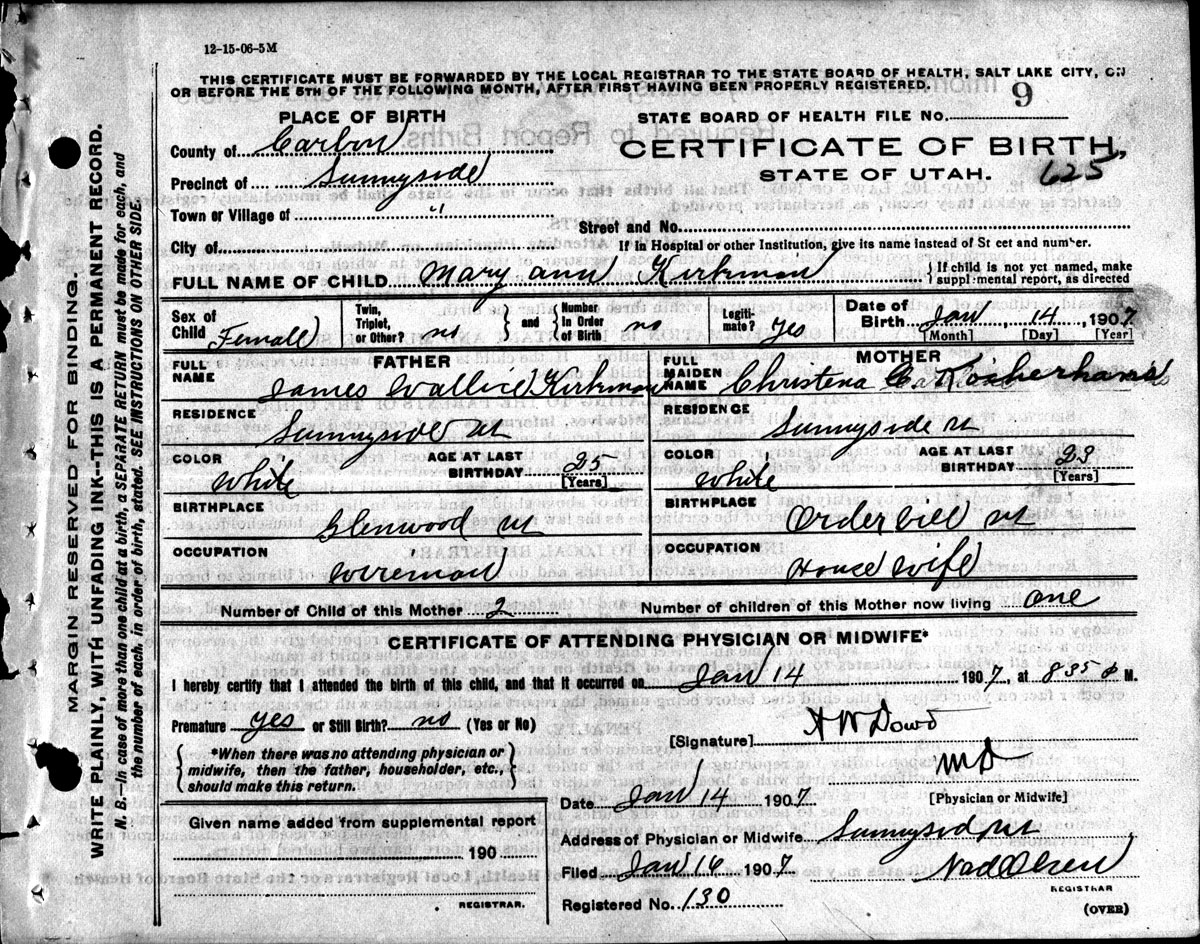 12-15-06-5M
THIS CERTIFICATE MUST BE FORWARDED BY THE LOCAL REGISTRAR TO THE STATE BOARD OF HEALTH, SALT LAKE CITY, ON
OR BEFORE THE 5TH OF THE FOLLOWING MONTH, AFTER FIRST HAVING BEEN PROPERLY REGISTERED.
PLACE OF BIRTH
STATE BOARD OF HEALTH FILE NO. 9
County of Carbon
CERTIFICATE OF BIRTH,
Precinct of Sunnyside
STATE OF UTAH. 625
Town or Village of "
Street and No.
City of
If in Hospital or other Institution, give its name instead of St eet and number.
FULL NAME OF CHILD Mary ann Kirkman
{ If child is not yet named, make supplemental report, as directed
Sex of Child Female
Twin, Triplet, or Other? no } and { Number in Order of Birth no
Legitimate? yes
Date of Birth Jan 14 1907
[Month] [Day] [Year]
FATHER
FULL NAME James Wallice Kirkman
RESIDENCE
Sunnyside ut
COLOR White
AGE AT LAST BIRTHDAY 25 [Years]
BIRTHPLACE
Glenwood ut
OCCUPATION
Wireman
MOTHER
FULL MAIDEN NAME Christena
RESIDENCE
Sunnyside ut
COLOR White
AGE AT LAST BIRTHDAY 23 [Years]
BIRTHPLACE
Orderville ut
OCCUPATION
House Wife
Number of Child of this Mother 2 Number of children of this Mother now living one
CERTIFICATE OF ATTENDING PHYSICIAN OR MIDWIFE*
I hereby certify that I attended the birth of this child, and that it occurred on Jan 14 1907, at 835 p M.
Premature yes or Still Birth? no (Yes or No)
[Signature] A W Dowd
{ *When there was no attending physician or midwife, then the father, householder, etc., should make this return. }
M D
[Physician or Midwife]
Date Jan 14 1907
Given name added from supplemental report
190
REGISTRAR.
Address of Physician or Midwife Sunnyside ut
Filed Jan 16 1907 Ned Olsen
REGISTRAR
Registered No. 130
(OVER)
MARGIN RESERVED FOR BINDING.
WRITE PLAINLY, WITH UNFADING INK--THIS IS A PERMANENT RECORD.
N. B.—In case of more than one child at a birth, a SEPARATE RETURN must be made for each, and
the number of each, in order of birth, stated. SEE INSTRUCTIONS ON OTHER SIDE.